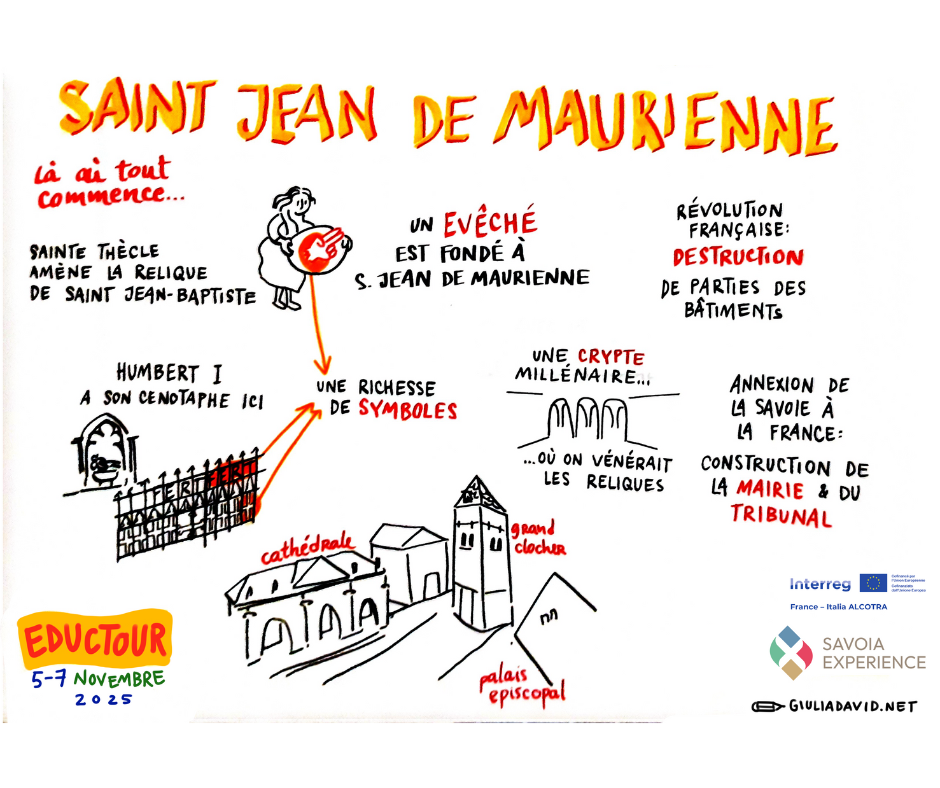 SAINT JEAN DE MAURIENNE
Là où tout
commence...
SAINTE THÈCLE
AMÈNE LA RELIQUE
DE SAINT JEAN-BAPTISTE
UN EVÊCHÉ
EST FONDÉ À
S. JEAN DE MAURIENNE
RÉVOLUTION
FRANÇAISE:
DESTRUCTION
DE PARTIES DES
BÂTIMENTS
HUMBERT I
A SON CENOTAPHE ICI
FERT FERT
UNE RICHESSE
DE SYMBOLES
UNE CRYPTE
MILLÉNAIRE...
...OÙ ON VÉNÉRAIT
LES RELIQUES
ANNEXION DE
LA SAVOIE À
LA FRANCE:
CONSTRUCTION DE
LA MAIRIE & DU
TRIBUNAL
cathédrale
grand
clocher
palais
episcopal
EDUCTOUR
5-7 NOVEMBRE
2025
Interreg
Cofinancé par
l'Union Européenne
Cofinanziato
dall'Unione Europea
France – Italia ALCOTRA
SAVOIA
EXPERIENCE
GIULIADAVID.NET